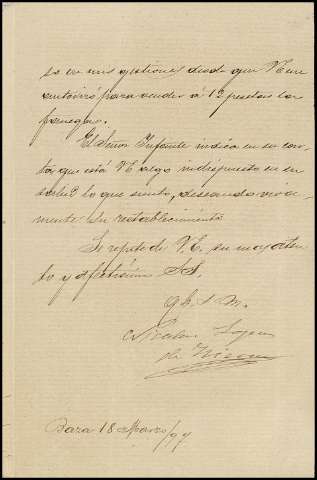 so en mis gestiones desde que V.E. me
autorizó para vender á 12 pesetas las
fanegas.
El Señor Infante indica en su car-
ta que está V.E. algo indispuesto en su
salud lo que siento, deseando viva-
mente su restablecimiento.
Se repite de V.E. su muy aten-
to y afectísimo S.S.
q.b.s.m.
Nicolas
de
Baza 18 Marzo/97